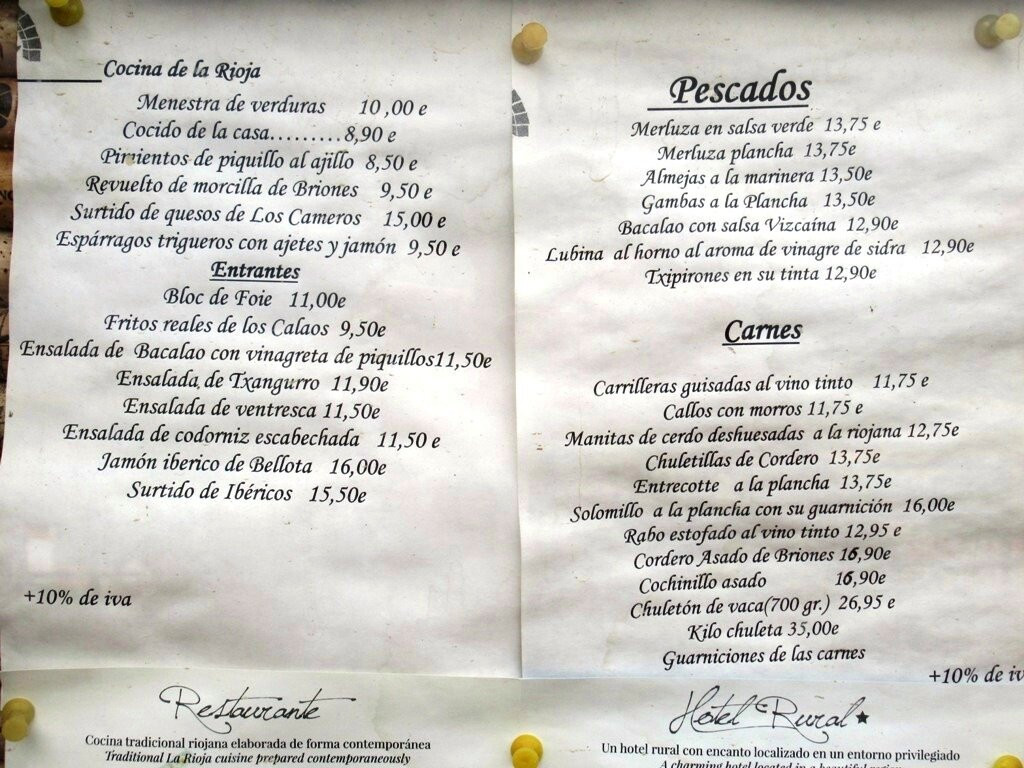 Cocina de la Rioja
Menestra de verduras 10,00 e
Cocido de la casa.........8,90 e
Pimientos de piquillo al ajillo 8,50 e
Revuelto de morcilla de Briones 9,50 e
Surtido de quesos de Los Cameros 15,00 e
Espárragos trigueros con ajetes y jamón 9,50 e
Entrantes
Bloc de Foie 11,00e
Fritos reales de los Calaos 9,50e
Ensalada de Bacalao con vinagreta de piquillos11,50e
Ensalada de Txangurro 11,90e
Ensalada de ventresca 11,50e
Ensalada de codorniz escabechada 11,50 e
Jamón iberico de Bellota 16,00e
Surtido de Ibéricos 15,50e
+10% de iva
Pescados
Merluza en salsa verde 13,75 e
Merluza plancha 13,75e
Almejas a la marinera 13,50e
Gambas a la Plancha 13,50e
Bacalao con salsa Vizcaína 12,90e
Lubina al horno al aroma de vinagre de sidra 12,90e
Txipirones en su tinta 12,90e
Carnes
Carrilleras guisadas al vino tinto 11,75 e
Callos con morros 11,75 e
Manitas de cerdo deshuesadas a la riojana 12,75e
Chuletillas de Cordero 13,75e
Entrecotte a la plancha 13,75e
Solomillo a la plancha con su guarnición 16,00e
Rabo estofado al vino tinto 12,95 e
Cordero Asado de Briones 16,90e
Cochinillo asado 16,90e
Chuletón de vaca(700 gr.) 26,95 e
Kilo chuleta 35,00e
Guarniciones de las carnes
+10% de iv
Restaurante
Cocina tradicional riojana elaborada de forma contemporánea
Traditional La Rioja cuisine prepared contemporaneously
Hotel Rural
Un hotel rural con encanto localizado en un entorno privilegiado
A charming hotel located in a beautiful region